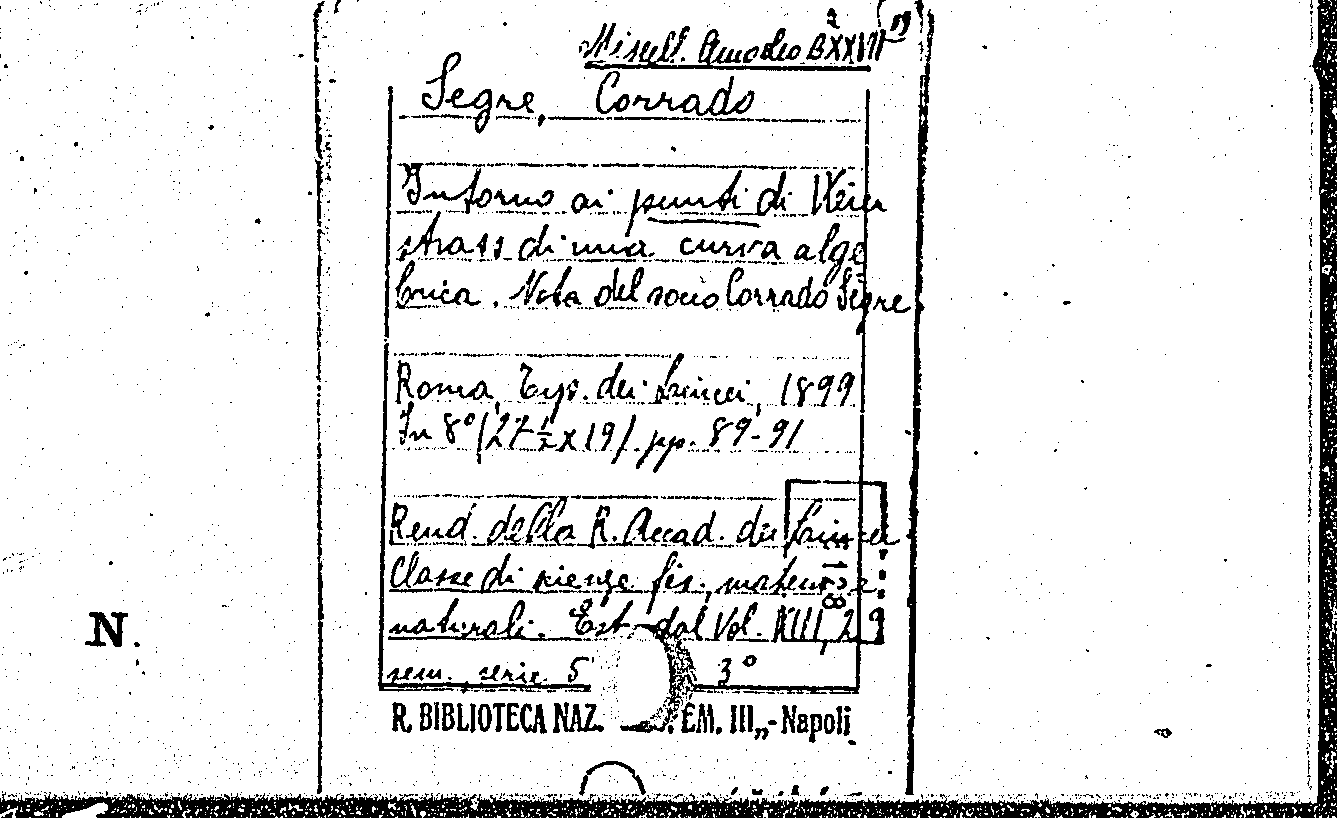 Miscell. Amodeo B XXVII 2 19
Segre, Corrado
Intorno ai punti di Weier
strass di una curva alge
brica. Nota del socio Corrado Segre.
Roma, Typ. dei Lincei, 1899
In 8º (27 ½ x 19). pp. 89-91
Rend. della R. Accad. dei Lincei.
Classe di scienze fis., matem. e
naturali. Est. dal Vol. XIII, 2º
sem., serie 5 3º
R. BIBLIOTECA NAZ. EM. III„ - Napoli
N.